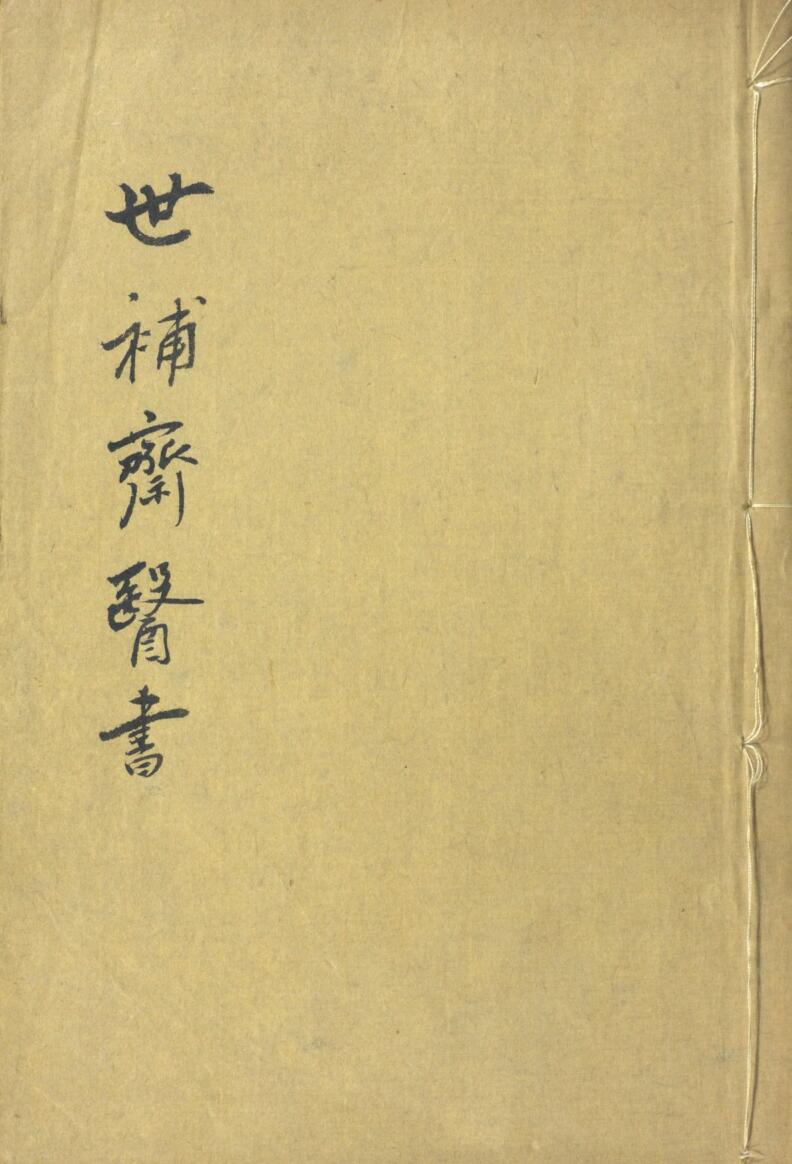 世補齋醫書